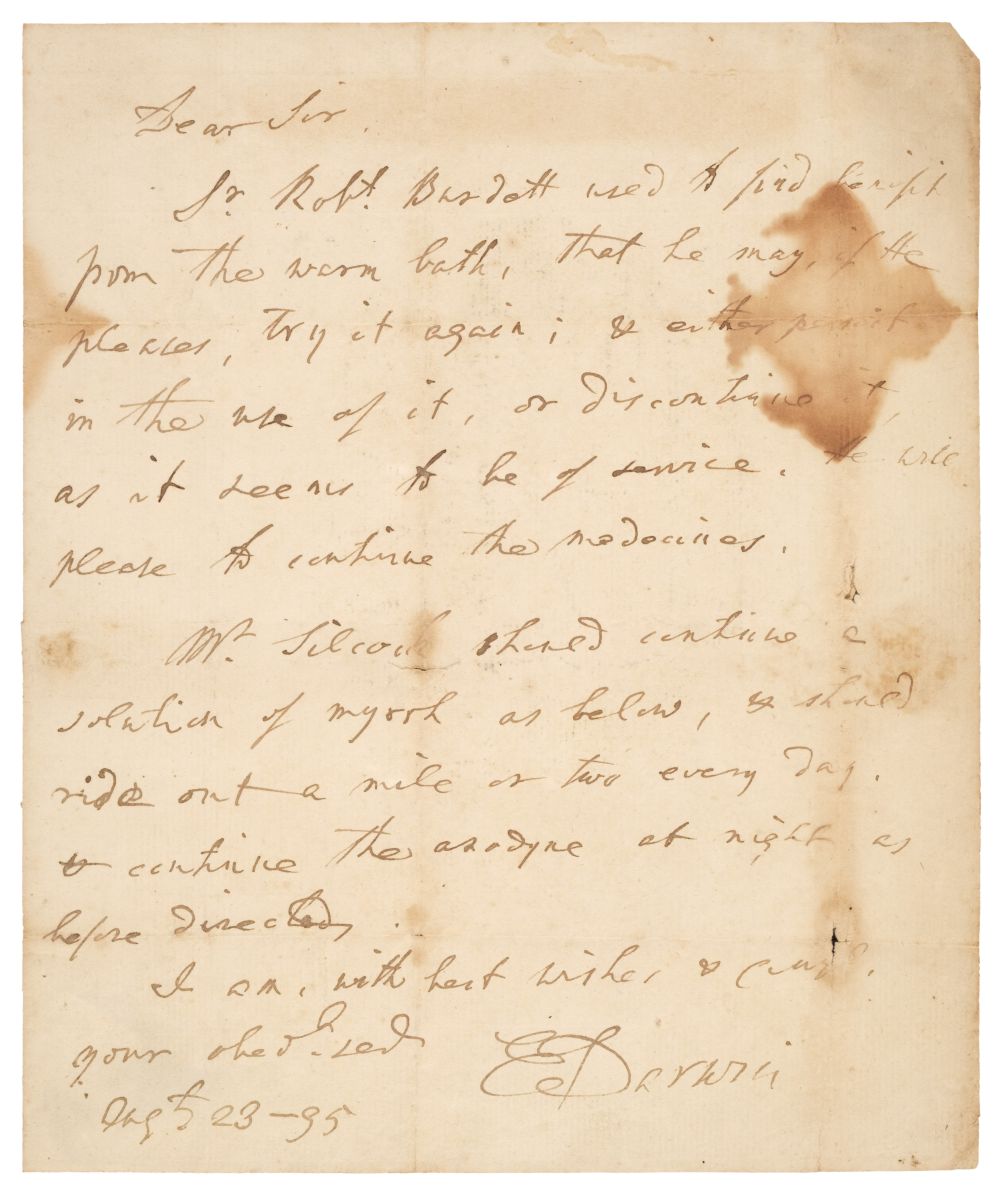 Dear Sir.
Sr. Robt. Burdett used to find benifit
from the warm bath, that he may, if He
pleases, try it again; & either persist
in the use of it, or discontinue it,
as it seems to be of service. He will
please to continue the medecines.
Mr. Silcock should continue a
solution of myrrh as below, & should
ride out a mile or two every day.
& continue the anodyne at night as
before directed.
I am, with best wishes &
your obedt. serv
E Darwin
Augt 23-95